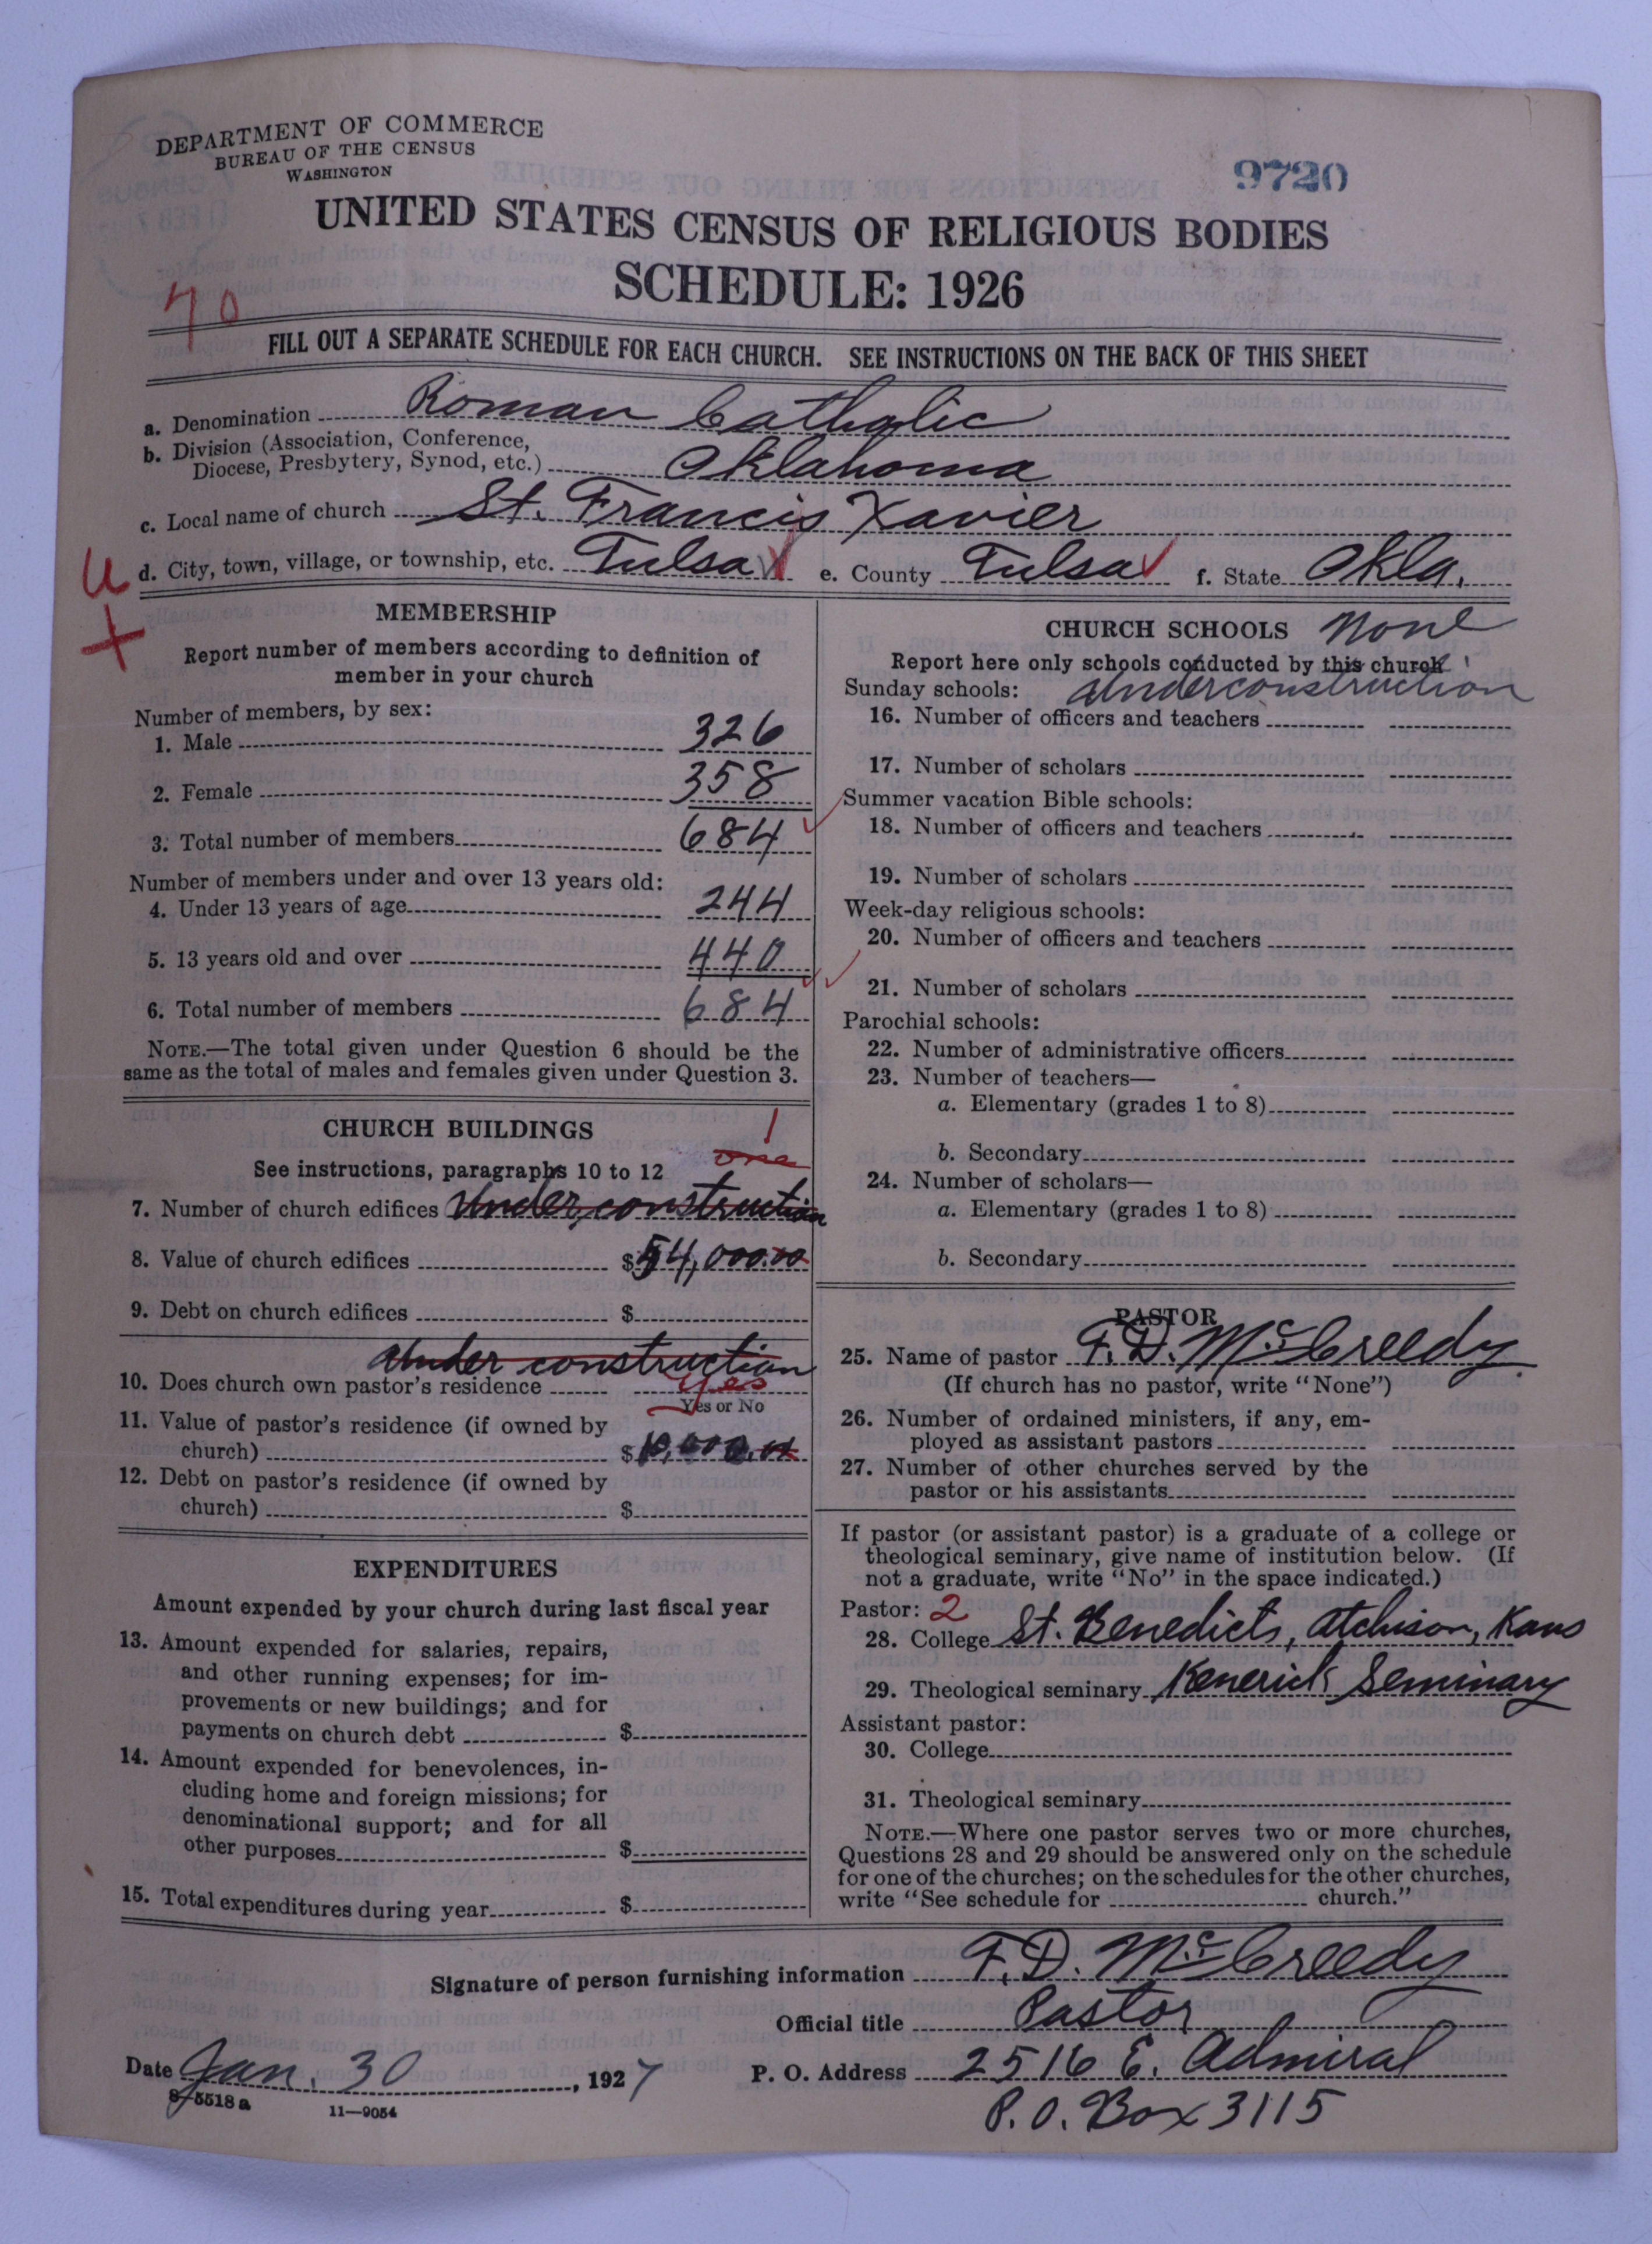 DEPARTMENT OF COMMERCE
BUREAU OF THE CENSUS
WASHINGTON
9720
UNITED STATES CENSUS OF RELIGIOUS BODIES
SCHEDULE: 1926
70
FILL OUT A SEPARATE SCHEDULE FOR EACH CHURCH. SEE INSTRUCTIONS ON THE BACK OF THIS SHEET
a. Denomination Roman Catholic
b. Division (Association, Conference,
Diocese, Presbytery, Synod, etc.) Oklahoma
c. Local name of church St. Francis Xavier
U d. City, town, village, or township, etc. Tulsa e. County Tulsa f. State Okla.
+
MEMBERSHIP
Report number of members according to definition of
member in your church
Number of members, by sex:
1. Male 326
2. Female 358
3. Total number of members 684
Number of members under and over 13 years old:
4. Under 13 years of age 244
5. 13 years old and over 440
6. Total number of members 684
NOTE.—The total given under Question 6 should be the
same as the total of males and females given under Question 3.
CHURCH BUILDINGS 1
See instructions, paragraphs 10 to 12 one
7. Number of church edifices Under construction
8. Value of church edifices $54,000.00
9. Debt on church edifices $
Under construction
10. Does church own pastor's residence Yes
Yes or No
11. Value of pastor's residence (if owned by
church) $10,000.00
12. Debt on pastor's residence (if owned by
church) $
EXPENDITURES
Amount expended by your church during last fiscal year
13. Amount expended for salaries, repairs,
and other running expenses; for im-
provements or new buildings; and for
payments on church debt $
14. Amount expended for benevolences, in-
cluding home and foreign missions; for
denominational support; and for all
other purposes $
15. Total expenditures during year $
CHURCH SCHOOLS None
Report here only schools conducted by this church
Sunday schools: Underconstruction
16. Number of officers and teachers
17. Number of scholars
Summer vacation Bible schools:
18. Number of officers and teachers
19. Number of scholars
Week-day religious schools:
20. Number of officers and teachers
21. Number of scholars
Parochial schools:
22. Number of administrative officers
23. Number of teachers—
a. Elementary (grades 1 to 8)
b. Secondary
24. Number of scholars—
a. Elementary (grades 1 to 8)
b. Secondary
PASTOR
25. Name of pastor F. D. McCreedy
(If church has no pastor, write "None")
26. Number of ordained ministers, if any, em-
ployed as assistant pastors
27. Number of other churches served by the
pastor or his assistants
If pastor (or assistant pastor) is a graduate of a college or
theological seminary, give name of institution below. (If
not a graduate, write "No" in the space indicated.)
Pastor: 2
28. College St. Benedicts, Atchison, Kans
29. Theological seminary Kenerick Seminary
Assistant pastor:
30. College
31. Theological seminary
NOTE.—Where one pastor serves two or more churches,
Questions 28 and 29 should be answered only on the schedule
for one of the churches; on the schedules for the other churches,
write "See schedule for church."
Signature of person furnishing information F. D. McCreedy
Official title Pastor
Date Jan. 30, 1927 P. O. Address 2516 E. Admiral
8-5518 a 11—9054 P.O. Box 3115